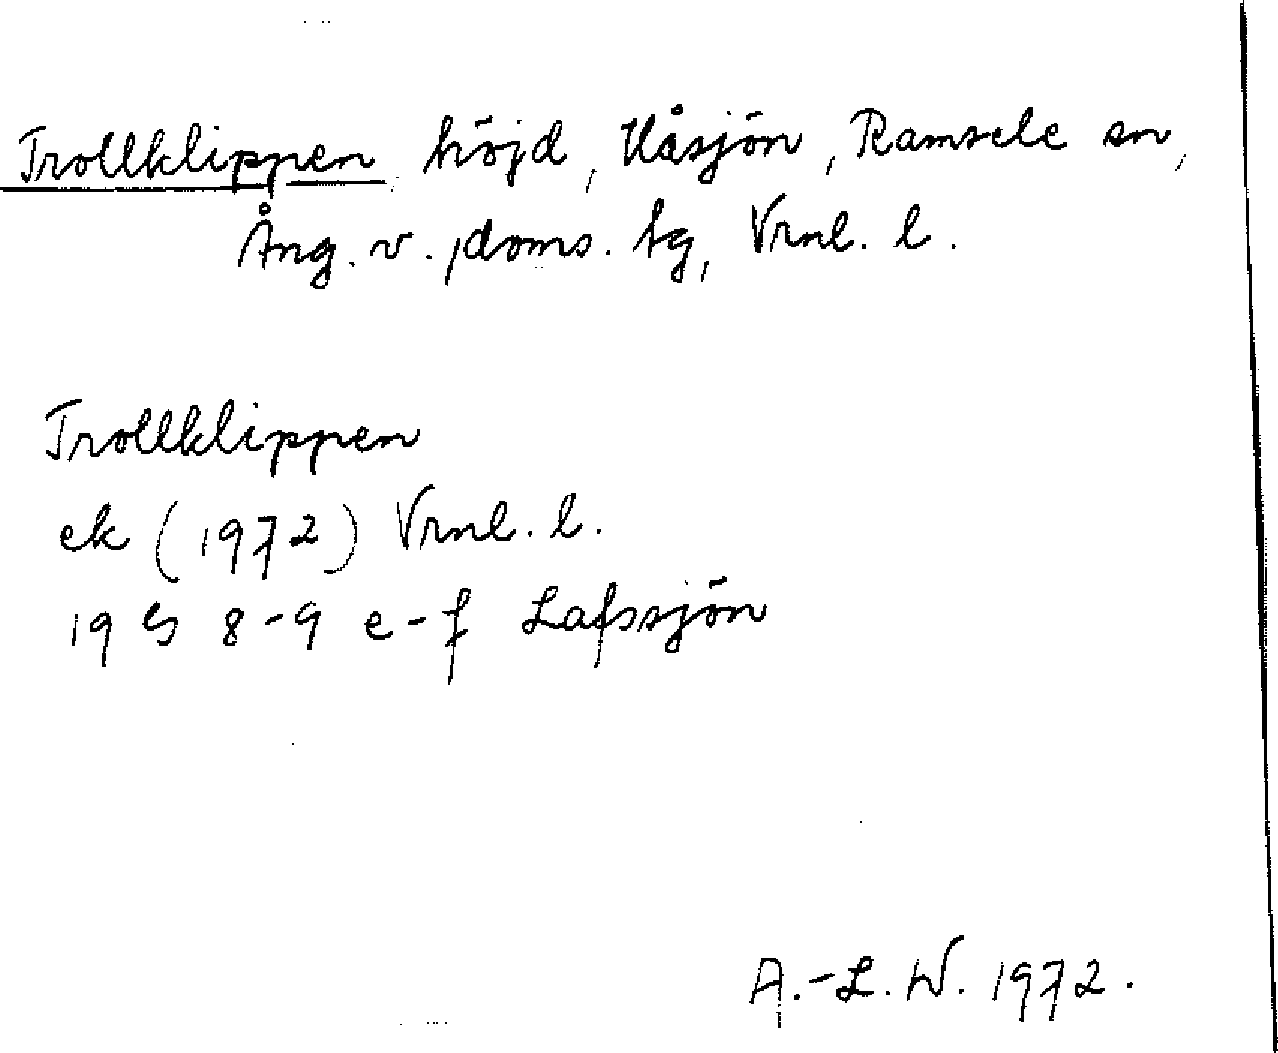 Trollklippen höjd, Uåsjön, Ramsele sn,
Ång. v. doms. tg, Vrnl. l.
Trollklippen
ek (1972) Vrnl. l.
19 G 8-9 e-f Lafssjön
A.-L. W. 1972.